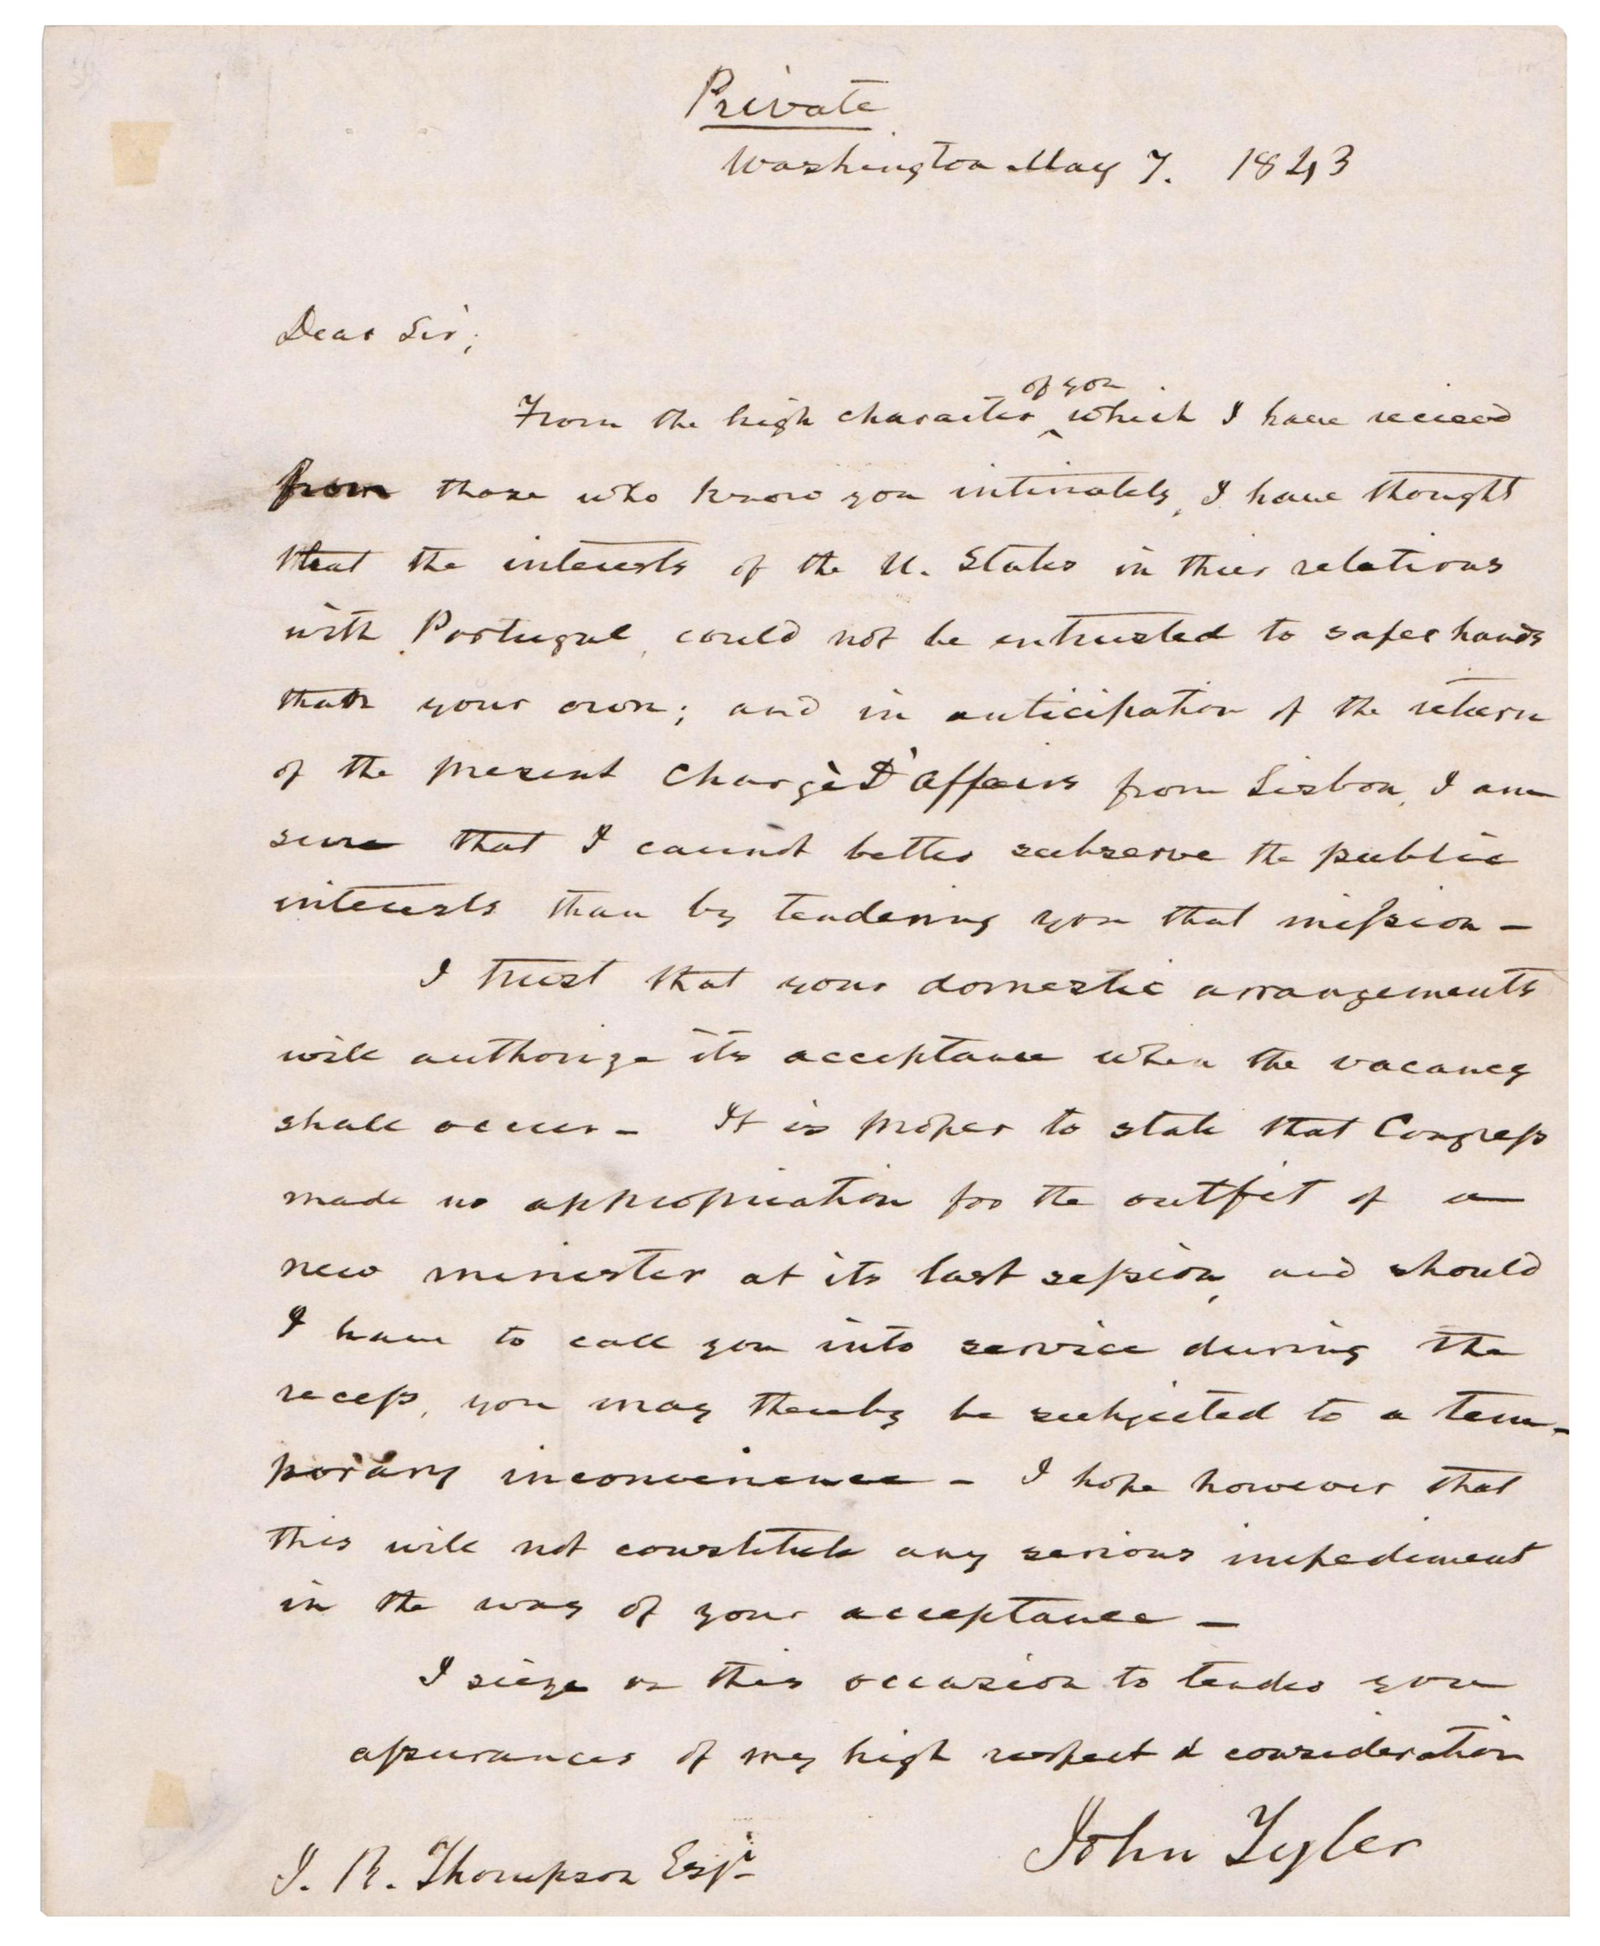 Private
Washington May 7. 1843
Dear Sir;
of you
From the high character ^ which I have recieved
from those who know you intimately, I have thought
that the interests of the U. States in thier relations
with Portugal, could not be entrusted to safer hands
than your own; and in anticipation of the return
of the present Chargè D'Affairs from Lisbon, I am
sure that I cannot better subserve the public
interests than by tendering you that mission —
I trust that your domestic arrangements
will authorize its acceptance when the vacancy
shall occur — It is proper to state that Congress
made no appropriation for the outfit of a
new minister at its last session, and should
I have to call you into service during the
recess, you may thereby be subjected to a tem-
porary inconvenience — I hope however that
this will not constitute any serious impediment
in the way of your acceptance —
I sieze on this occasion to tender you
assurances of my high respect & consideration
John Tyler
J. R. Thompson Esqr